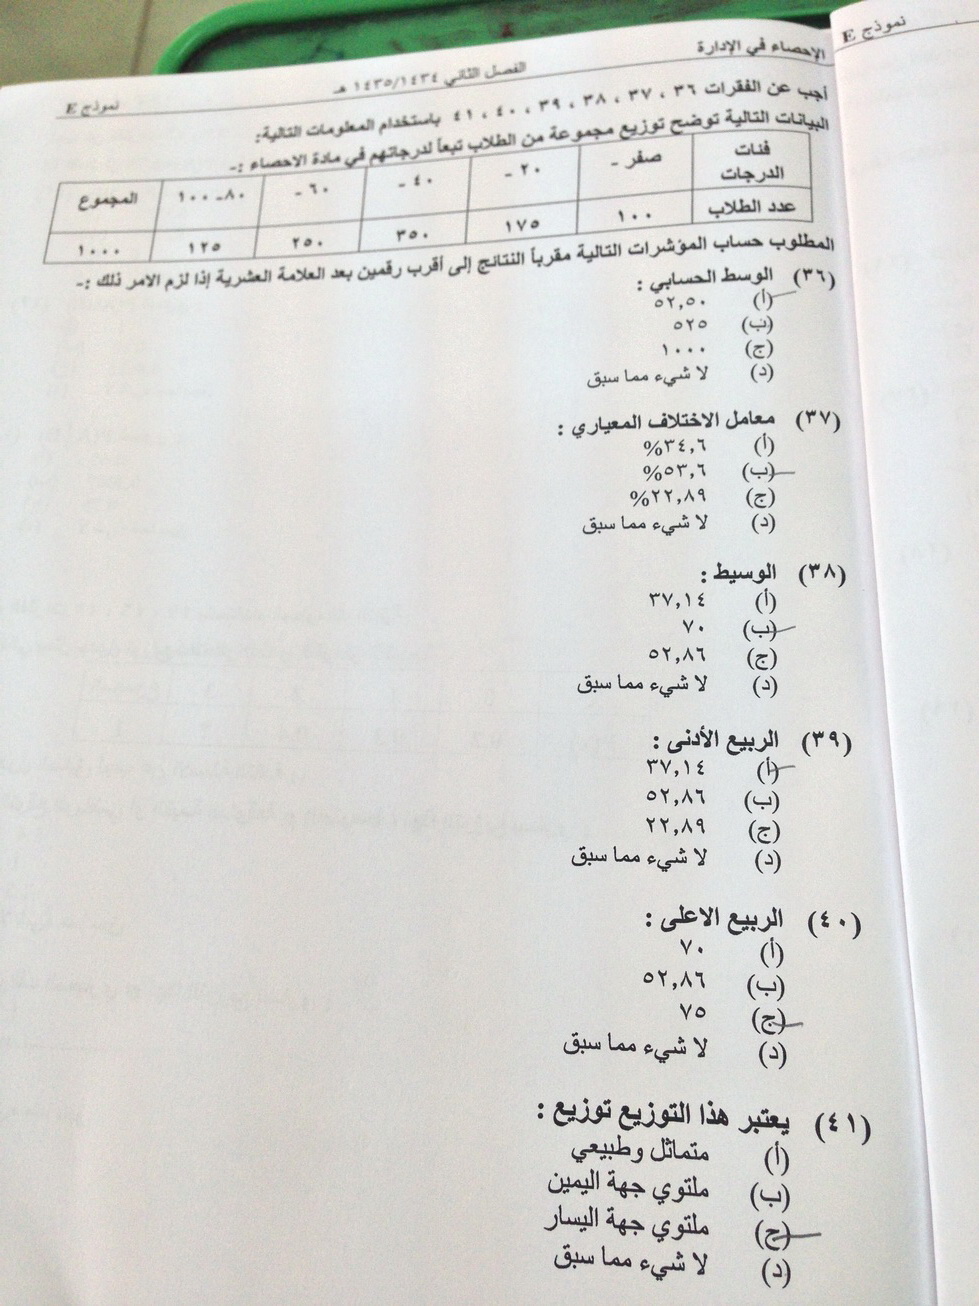 نموذج E
الإحصاء في الإدارة
الفصل الثاني ١٤٣٥/١٤٣٤ هـ
نموذج E
أجب عن الفقرات ٣٦ ، ٣٧ ، ٣٨ ، ٣٩ ، ٤٠ ، ٤١ باستخدام المعلومات التالية:
البيانات التالية توضح توزيع مجموعة من الطلاب تبعاً لدرجاتهم في مادة الاحصاء :-
فئات الدرجات صفر - ٢٠ - ٤٠ - ٦٠ - ٨٠ـ ١٠٠ المجموع
عدد الطلاب ١٠٠ ١٧٥ ٣٥٠ ٢٥٠ ١٢٥ ١٠٠٠
المطلوب حساب المؤشرات التالية مقرباً النتائج إلى أقرب رقمين بعد العلامة العشرية إذا لزم الامر ذلك :-
(٣٦) الوسط الحسابي :
(أ) ٥٢,٥٠
(ب) ٥٢٥
(ج) ١٠٠٠
(د) لا شيء مما سبق
(٣٧) معامل الاختلاف المعياري :
(أ) ٣٤,٦%
(ب) ٥٣,٦%
(ج) ٢٢,٨٩%
(د) لا شيء مما سبق
(٣٨) الوسيط :
(أ) ٣٧,١٤
(ب) ٧٠
(ج) ٥٢,٨٦
(د) لا شيء مما سبق
(٣٩) الربيع الأدنى :
(أ) ٣٧,١٤
(ب) ٥٢,٨٦
(ج) ٢٢,٨٩
(د) لا شيء مما سبق
(٤٠) الربيع الاعلى :
(أ) ٧٠
(ب) ٥٢,٨٦
(ج) ٧٥
(د) لا شيء مما سبق
(٤١) يعتبر هذا التوزيع توزيع :
(أ) متماثل وطبيعي
(ب) ملتوي جهة اليمين
(ج) ملتوي جهة اليسار
(د) لا شيء مما سبق